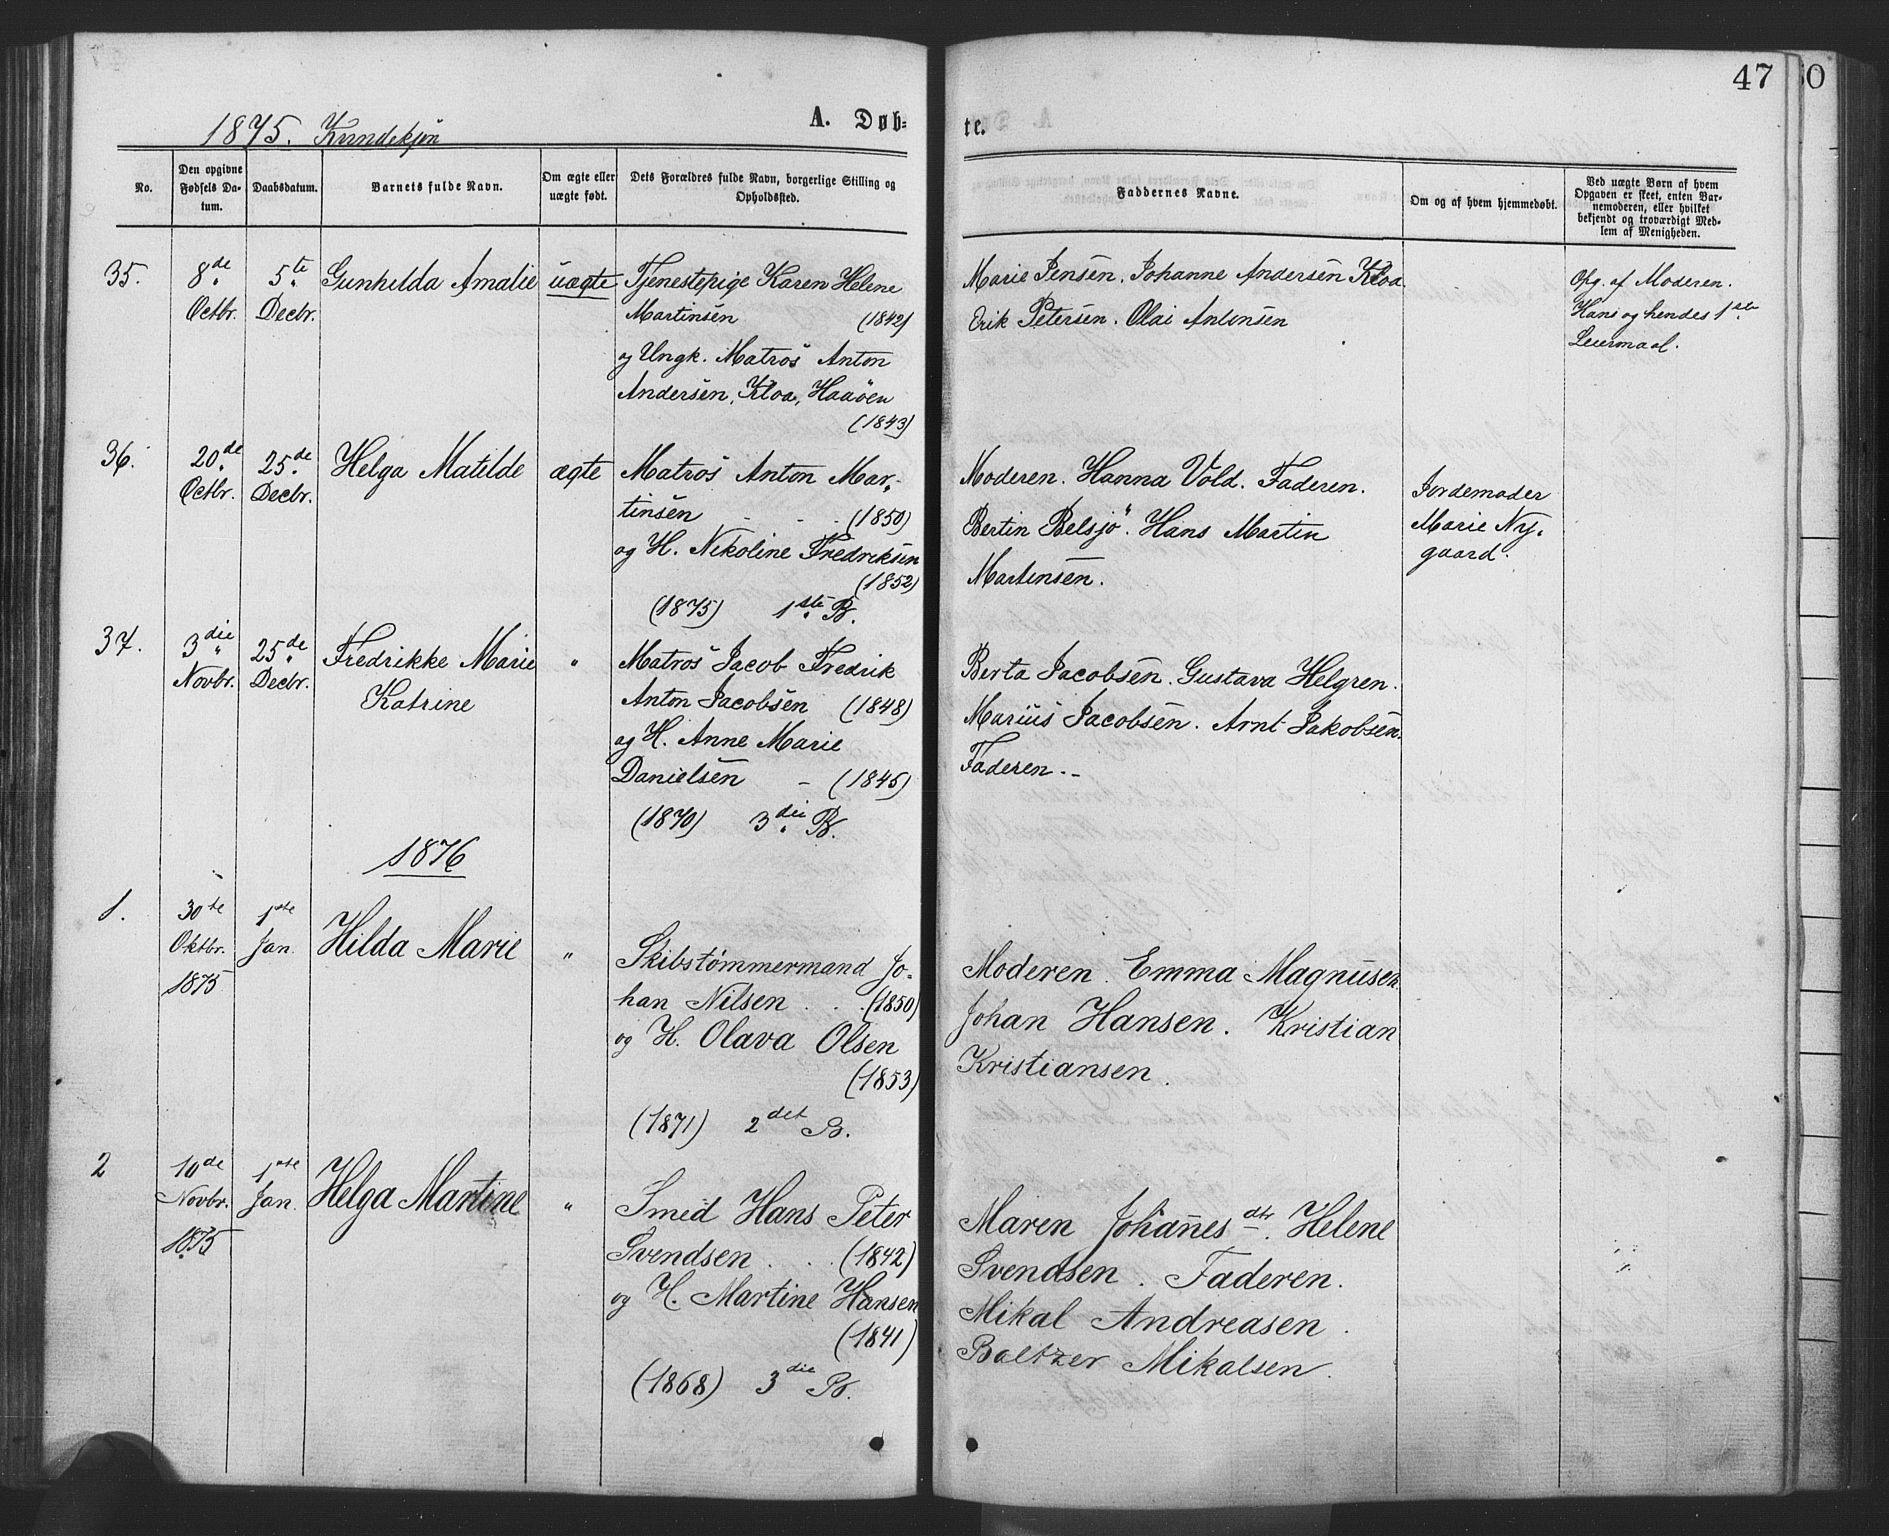 47
1875. Kvindekjøn
A. Døb-
te.
No.
Den opgivne Fødsels Da-
tum.
Daabsdatum.
Barnets fulde Navn.
Om ægte eller
uægte født.
Dets Forældres fulde Navn, borgerlige Stilling og
Opholdssted.
Faddernes Navne.
Om og af hvem hjemmedøbt.
Ved uægte Børn af hvem
Opgaven er skeet, enten Bar-
nemoderen, eller hvilket
bekjendt og troværdigt Med-
lem af Menigheden.
35.
8de
Octbr.
5te
Decbr.
Gunhilda Amalie
uægte
Tjenestepige Karen Helene
Martinsen (1842)
og Ungk. Matros Anton
Andersen, Kloa, Haaøen
(1843)
Marie Jensen. Johanne Andersen Kloa.
Erik Petersen. Olai Antonsen
Opg. af Moderen.
Hans og hendes 1ste
Leiermaal.
36.
20de
Octbr.
25de
Decbr.
Helga Matilde
ægte
Matros Anton Mar-
tinsen . . . (1850)
og H. Nikoline Fredriksen
(1852)
(1875) 1ste B.
Moderen. Hanna Vold. Faderen.
Bertin Belsjö. Hans Martin
Martinsen.
Jordemoder
Marie Ny-
gaard.
37.
3die
Novbr.
25de
Decbr.
Fredrikke Marie
Katrine
"
Matros Jacob Fredrik
Anton Jacobsen (1848)
og H. Anne Marie
Danielsen - (1845)
(1870) 3die B.
Berta Jacobsen. Gustava Helgren.
Marius Jacobsen. Arnt Jakobsen.
Faderen.-
1876
1.
30te
Oktbr.
1875
1ste
Jan.
Hilda Marie
"
Skibstømmermand Jo-
han Nilsen . . (1850)
og H. Olava Olsen
(1853)
(1871) 2det B.
Moderen. Emma Magnusen.
Johan Hansen. Kristian
Kristiansen.
2
10de
Novbr.
1875
1ste
Jan.
Helga Martine
"
Smed Hans Peter
Svendsen . . . (1842)
og H. Martine Hansen
(1841)
(1868) 3die B.
Maren Johanesdtr. Helene
Svendsen. Faderen.
Mikal Andreasen.
Baltzer Mikalsen.